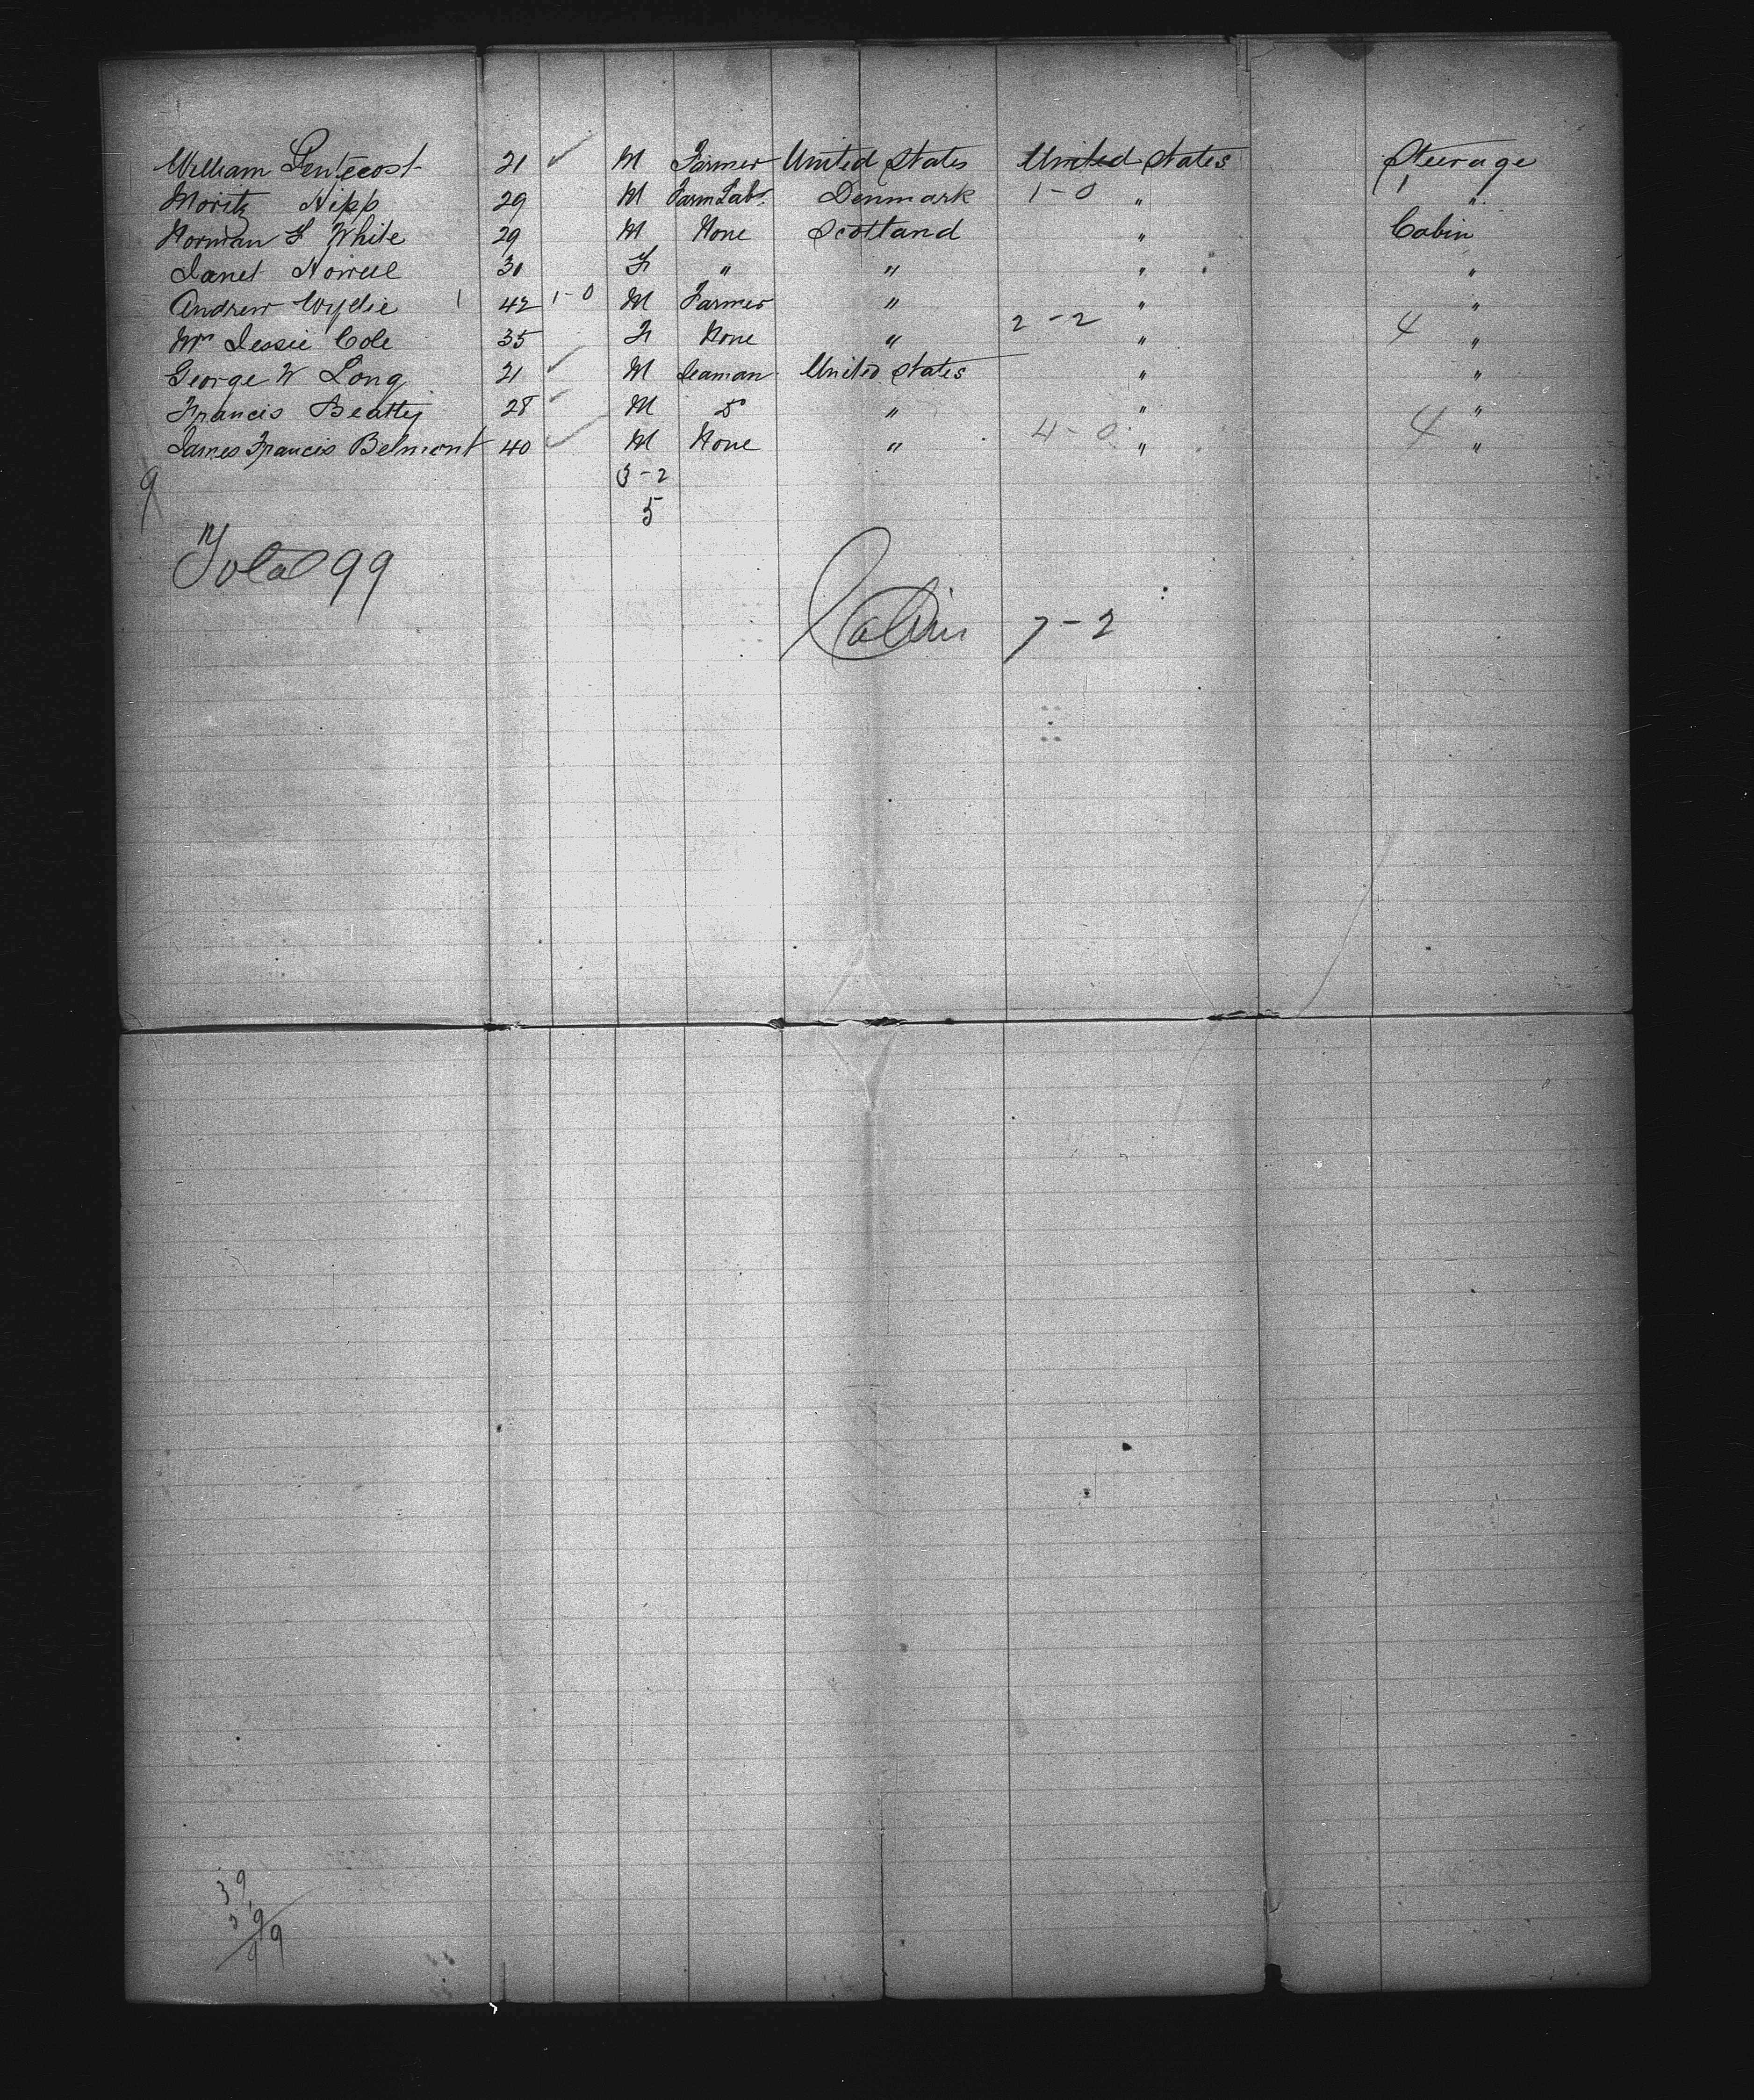 William Pentecost 21 ✓ M Farmer United States United States Steerage
Moritz Hipp 29 M Farm Labr. Denmark 1-0 " 1 "
Norman F White 29 M None Scotland " Cabin
Janet Howell 30 F " " " "
Andrew Wyllie 1 42 1-0 M Farmer " " "
Mrs Jessie Cole 35 F None " 2-2 " 4 "
George W Long 21 ✓ M Seaman United States " "
Francis Beatty 28 M Do " " "
James Francis Belmont 40 ✓ M None " 4-0 " 4 "
9 3-2
5
Total 99
Cabin 7-2
39
99